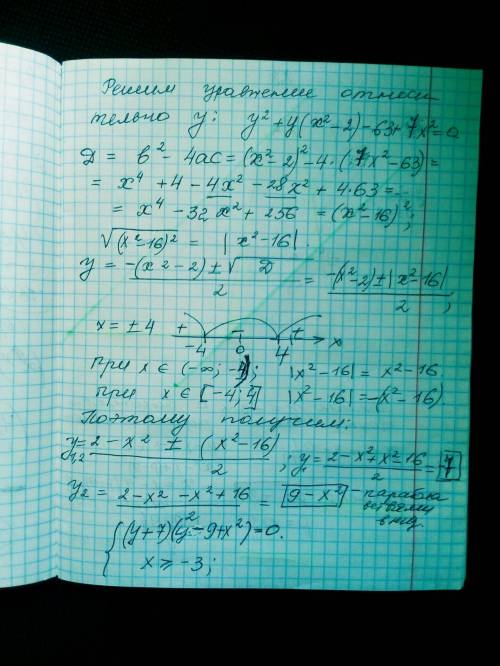 Решим уравнение относи
тельно y: y² + y(x² – 2) – 63 + 7x² = 0
Д = b² – 4ac = (x² – 2)² – 4·(7x² – 63) =
= x⁴ + 4 – 4x² – 28x² + 4·63 = ...
= x⁴ – 32x² + 256 = (x² – 16)²;
√(x² – 16)² = |x² – 16|.
y = –(x² – 2) ± √Д / 2 = –(x² – 2) ± |x² – 16| / 2 ;
x = ±4 + – + -4 0 4 x
при x ∈ (–∞; –4); |x² – 16| = x² – 16.
при x ∈ [–4; 4] |x² – 16| = –(x² – 16).
Поэтому получим:
y₁,₂ = 2 – x² ± (x² – 16) / 2 ; y₁ = 2 – x² + x² – 16 / 2 = 7
y₂ = 2 – x² – x² + 16 / 2 = 9 – x² – парабола
ветвями
вниз.
{ (y + 7)(y – 9 + x²) = 0.
x ≥ –3;